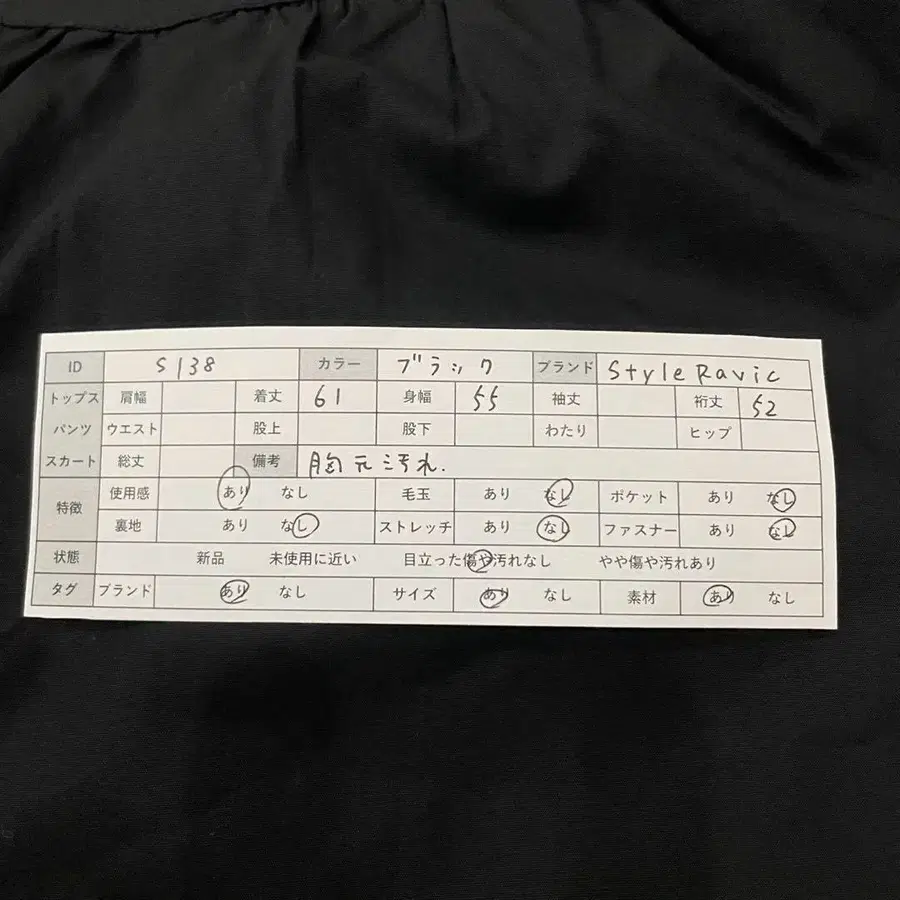 ID S138 カラー ブラック ブランド Style Ravic
トップス 肩幅 着丈 61 身幅 55 袖丈 裄丈 52
パンツ ウエスト 股上 股下 わたり ヒップ
スカート 総丈 備考 胸元汚れ.
特徴 使用感 あり なし 毛玉 あり なし ポケット あり なし
裏地 あり なし ストレッチ あり なし ファスナー あり なし
状態 新品 未使用に近い 目立った傷や汚れなし やや傷や汚れあり
タグ ブランド あり なし サイズ あり なし 素材 あり なし